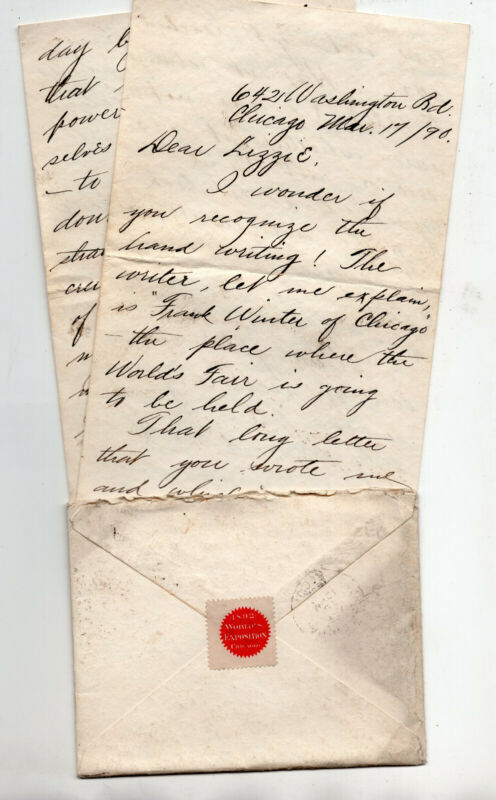 day b
that
power
selves
— to
don
stra
cre
of
642 Washington Bd.
Chicago Mar. 17/90.
Dear Lizzie,
I wonder if
you recognize the
hand writing! The
writer, let me explain,
is "Frank Winter of Chicago"
— the place where the
World's Fair is going
to be held.
That long letter
that you wrote me
and whi
1892
WORLD'S
EXPOSITION
CHICAGO